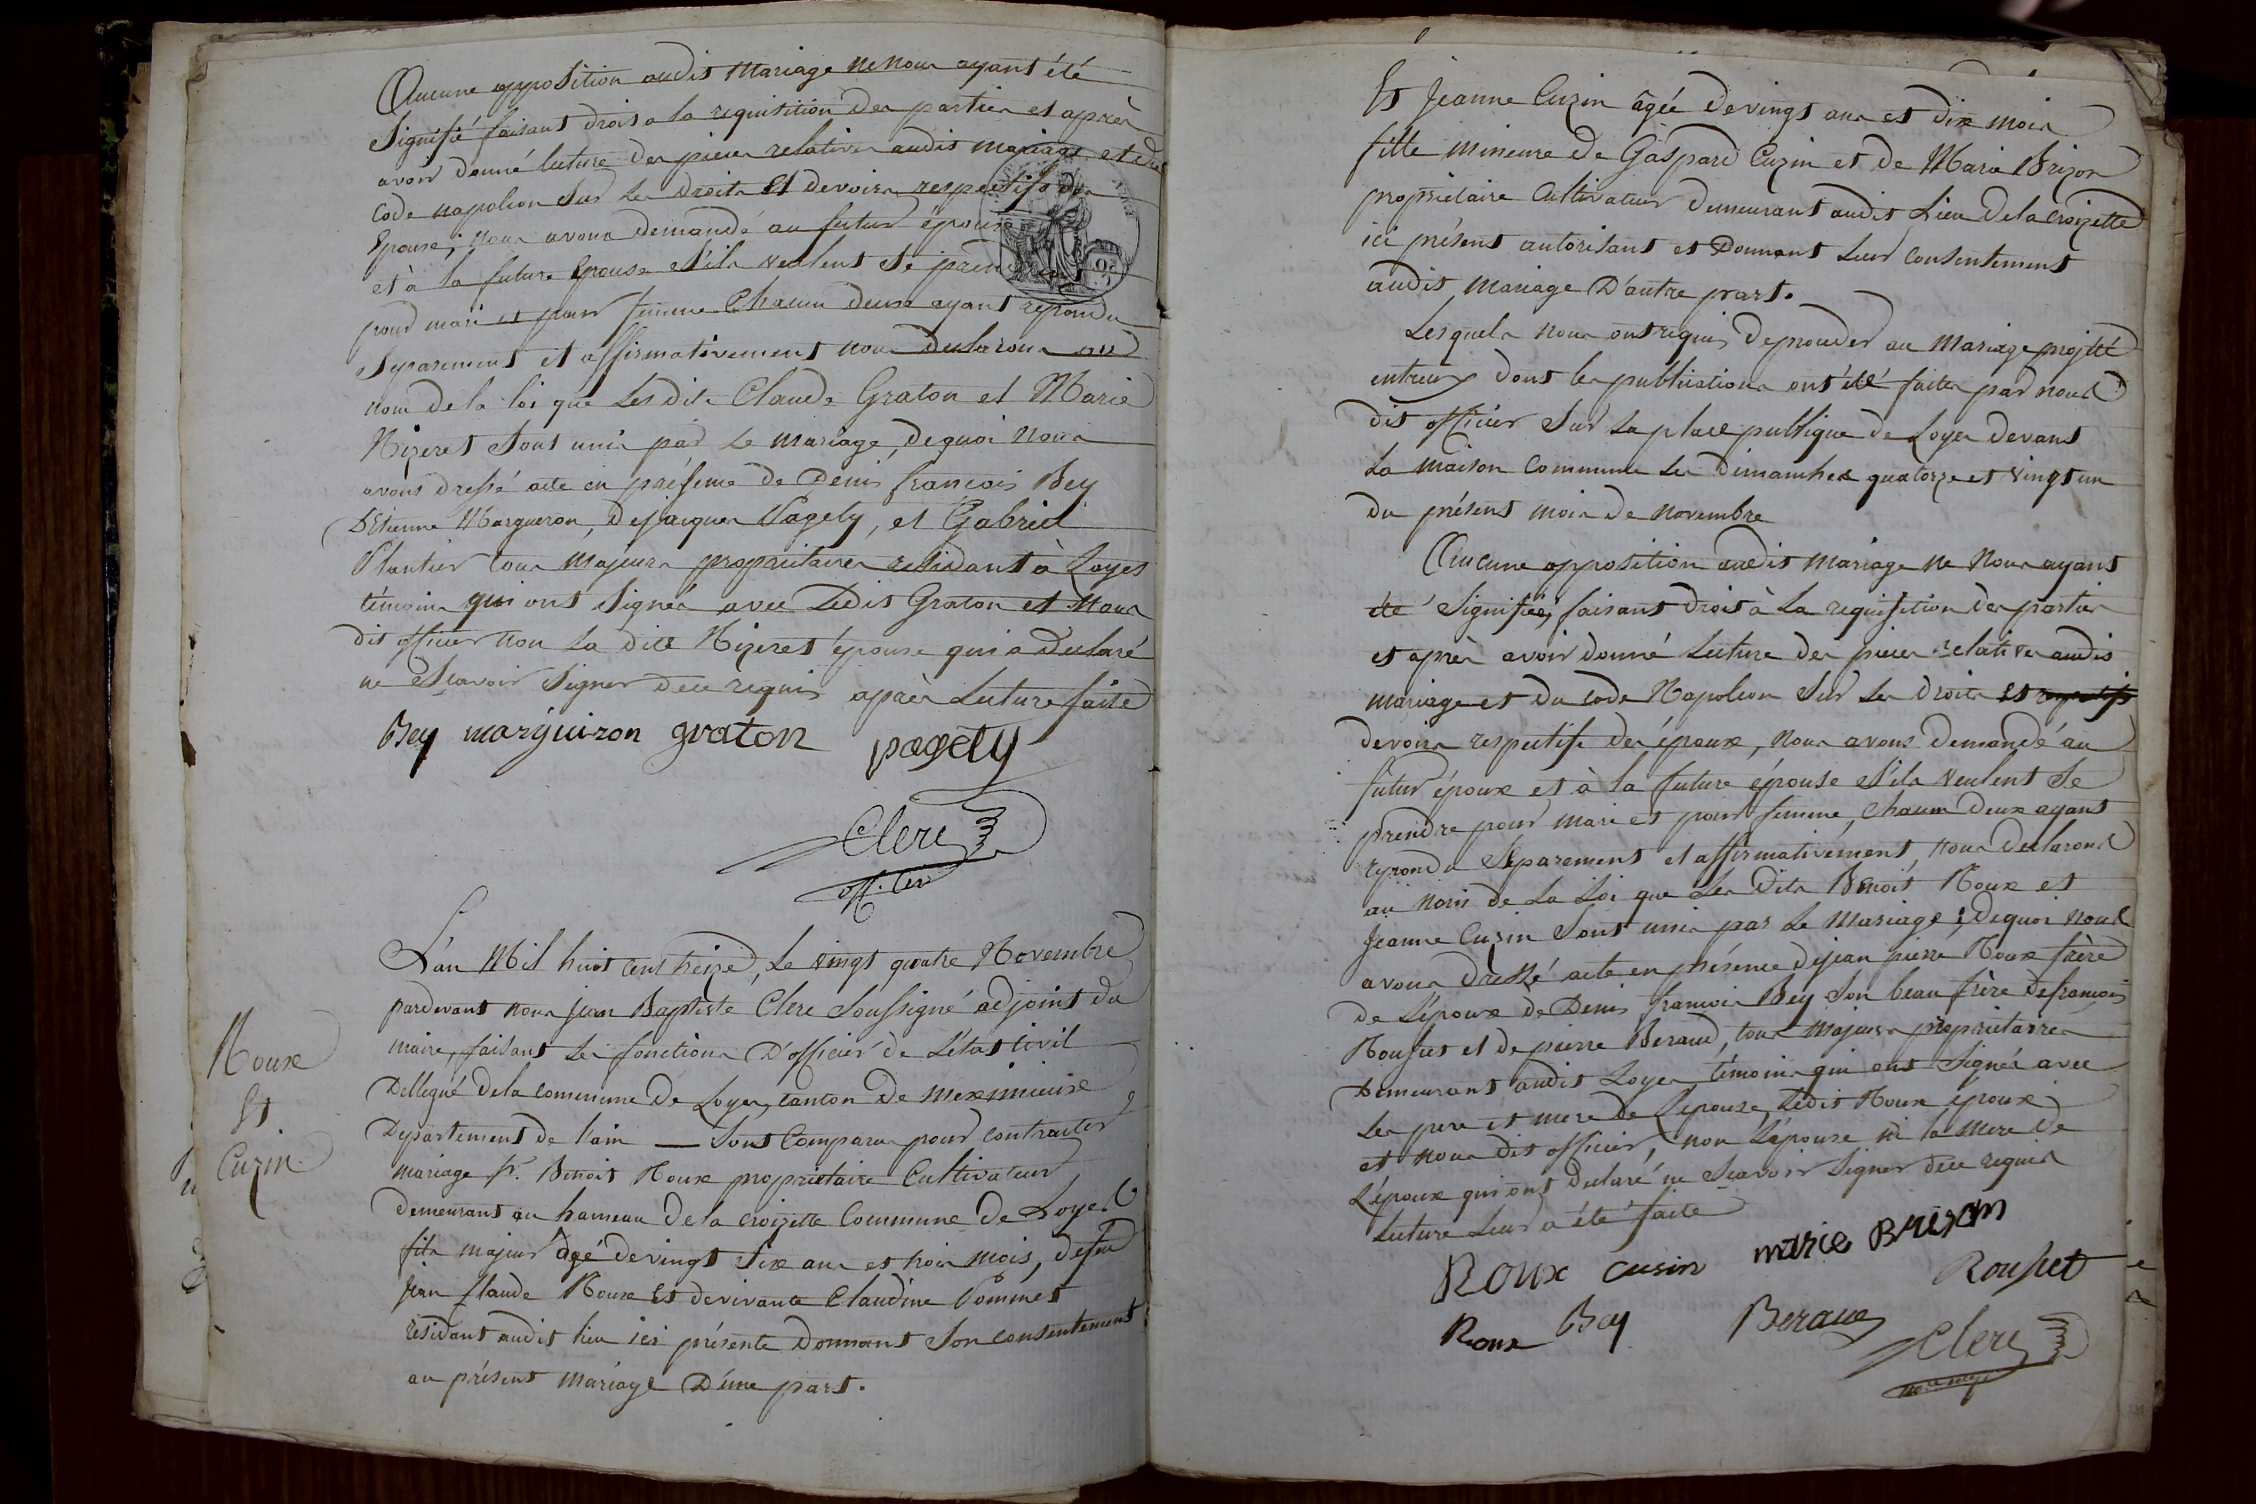 Aucune opposition audit Mariage ne nous ayant été
Signifié faisant droit a la requisition des parties et après
avoir donné lecture des pieces relatives audit mariage et du
Code napoleon Sur Les droits Et devoirs respectifs des
Epoux, nous avons demandé au futur époux
et à la future Epouse S'ils veulent Se prendre
pour mari et pour femme Chacun deux ayant repondu
Séparement et affirmativement nous declarons au
nom de la loi que Les dits Claude Graton et Marie
Nizeret Sont unis par Le mariage, dequoi Nous
avons dressé acte en présence de Denis françois Bey
D'Etienne Margueron, Dejacques Pagely, et Gabriel
Plantier tous Majeurs proprietaires residant à Loyes
témoins qui ont Signés avec Ledit Graton et Nous
dit officier non La dite Nizeret épouse qui a declaré
ne Scavoir Signer dece requis après Lecture faite
Bey marguiron graton pagely
Clerc
off. Civ
L'an Mil huit cent treize, Le vingt quatre Novembre
pardevant nous jean Baptiste Clerc Soussigné adjoint du
maire, faisant les fonctions D'officier de L'état civil
Dellegué dela commune de Loyes, canton de meximieux
Departement de l'ain — Sont Comparus pour contracter
mariage Sr. Benoit Roux proprietaire Cultivateur
demeurant au hameau dela croizette Commune de Loyes
fils majeur âgé devingt Six ans et trois mois, defeu
jean Claude Roux Et devivante Claudine Pommet
résidant audit lieu ici présente Donnant Son consentement
au présent mariage D'une part.
Roux
Et
Cuzin
Et Jeanne Cuzin âgée devingt ans et dix mois
fille mineure de Gaspard Cuzin et de Marie Brizon
proprietaire Cultivateur demeurant audit Lieu dela croizette
ici présent autorisant et Donnant Leur Consentement
audit Mariage D'autre part.
Lesquels nous ont requis deproceder au Mariage projetté
entreux dont les publications ont été faites par nous
dit officier Sur La place publique de Loyes devant
La maison Commune Les dimanches quatorze et vingt un
du présent mois de novembre
Aucune opposition audit mariage ne Nous ayant
été Signifiée, faisant droit à La requisition des parties
et après avoir donné Lecture des pieces relatives audit
mariage et du code Napoleon Sur Les droits Et respectifs
devoirs respectifs des époux, nous avons demandé au
futur époux et à la future épouse S'ils veulent Se
prendre pour mari et pour femme, chacun deux ayant
repondu Séparement et affirmativement, nous declarons
au nom de La Loi que Les dits Benoit Roux et
Jeanne Cuzin Sont unis par Le Mariage; dequoi nous
avons dressé acte en présence dejean pierre Roux frère
de L'époux de Denis francois Bey Son beau frère defrançois
Rousset et de pierre Beraud, tous Majeurs proprietaires
Demeurant audit Loyes témoins qui ont Signés avec
Les pere et mere de L'épouse, Ledit Roux époux
et nous dit officier, non L'épouse ni la mere de
L'époux qui ont declaré ne Scavoir Signer dece requis
Lecture Leur a été faite
Roux cusin marie Brison
Rousset
Roux Bey Beraud
Clerc